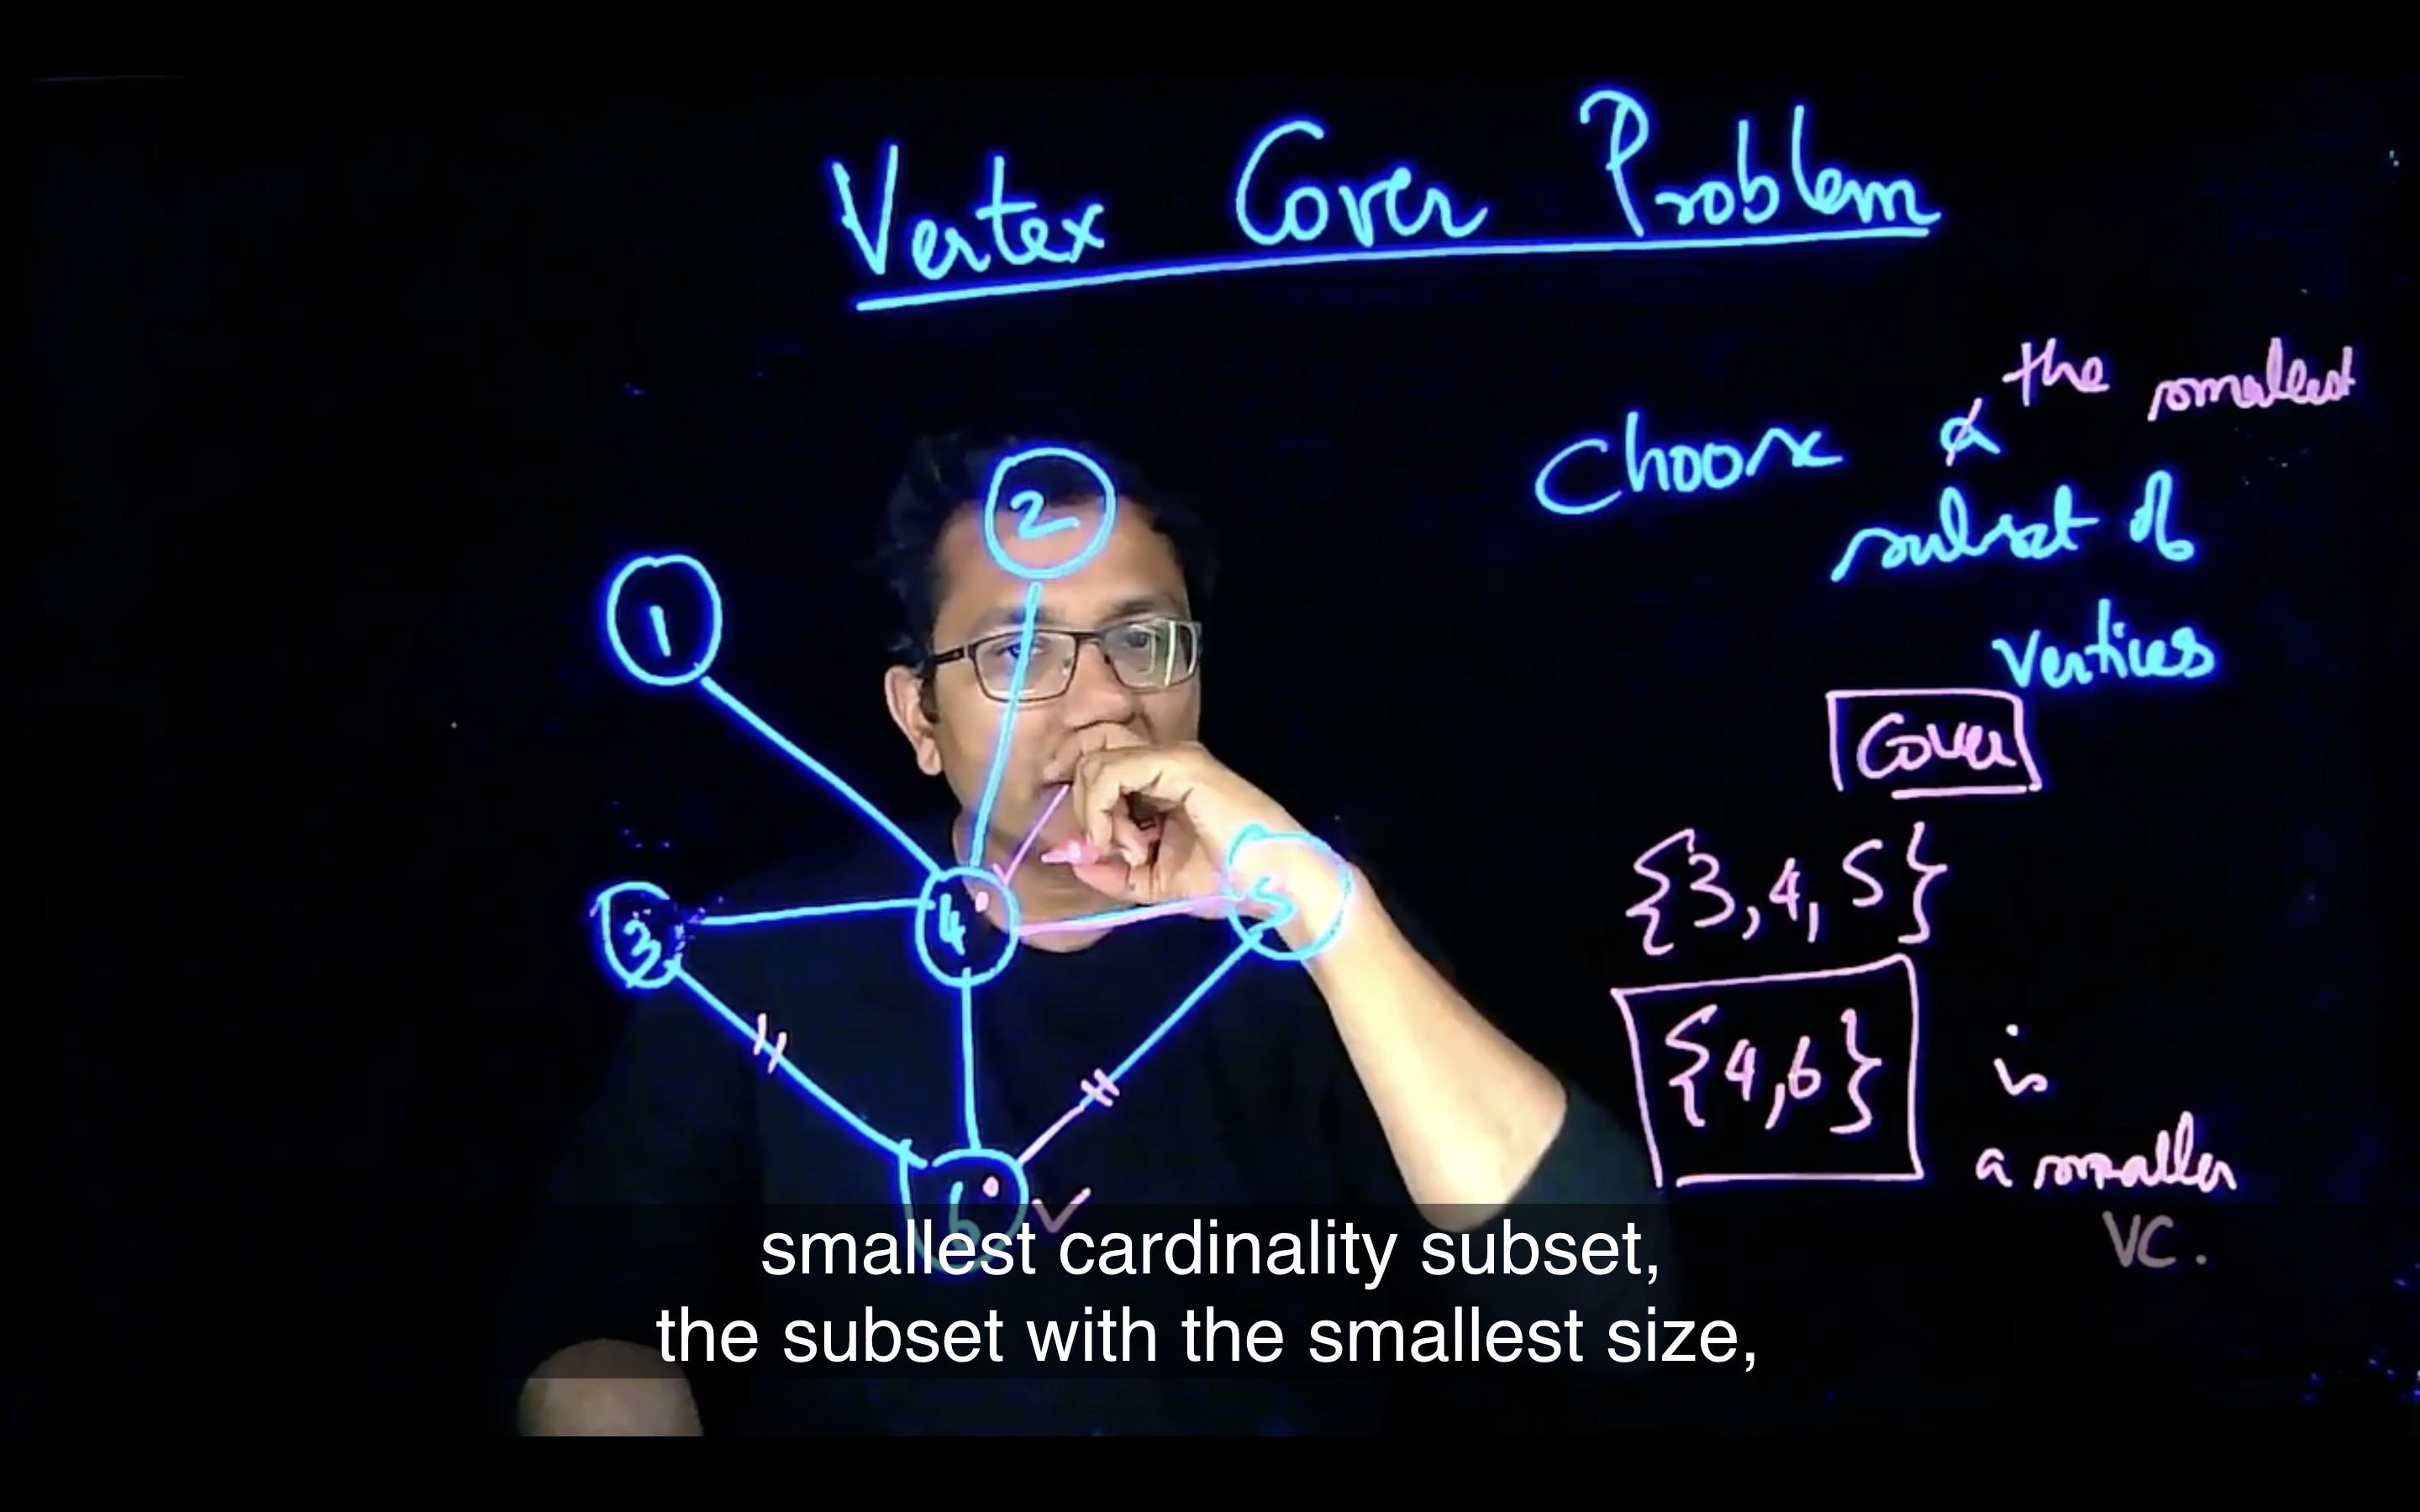 Vertex Cover Problem
the smallest
Choose a
subset of
vertices
Cover
2
1
3
4
5
6
{3,4,5}
{4,6} is
a smaller
VC.
smallest cardinality subset,
the subset with the smallest size,